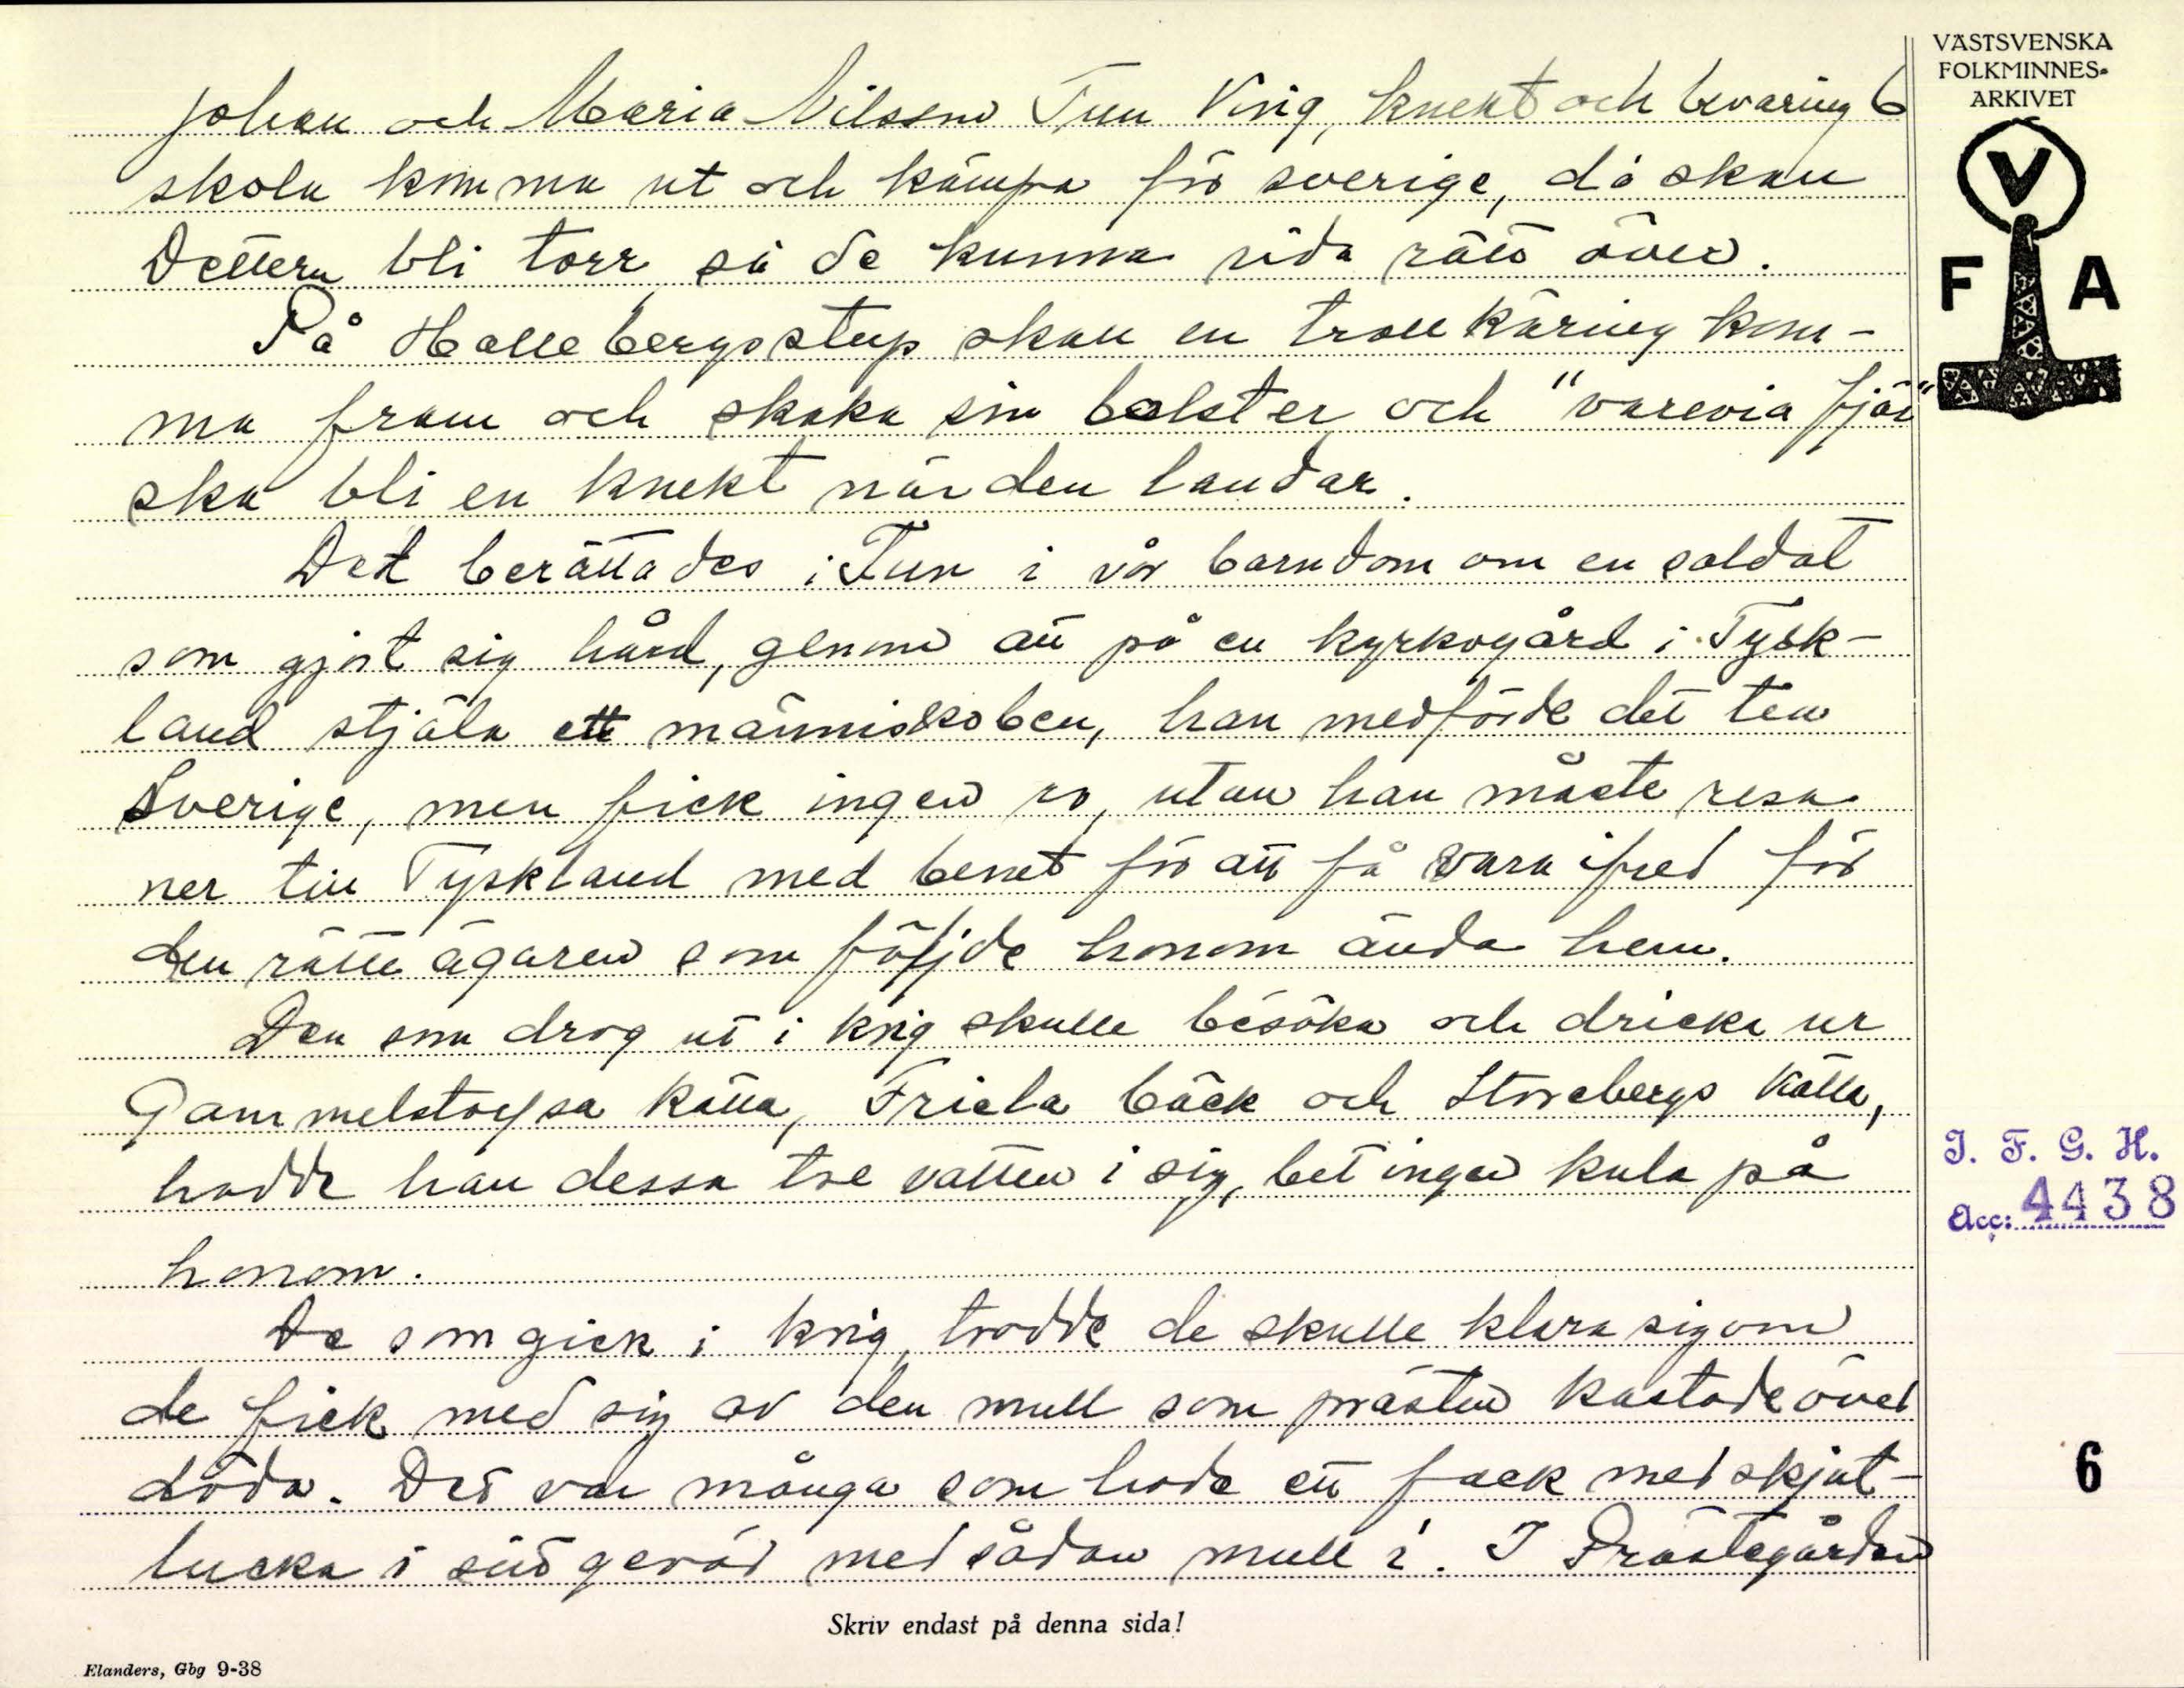 VÄSTSVENSKA
FOLKMINNES-
ARKIVET
V
F A
Johan och Maria Nilsson Tun Viste, knekt och bevaring 6
skola komma ut och kämpa för sverige, då skall
Dettern bli torr så de kunna rida rätt över.
På Hallebergs stup skall en trollkäring kom-
ma fram och skaka sin bolster och "varevia fjär"
ska bli en knekt när den landar.
Det berättades i Tun i vår barndom om en soldat
som gjort sig hård, genom att på en kyrkogård i Tysk-
land stjäla ett människoben, han medförde det till
Sverige, men fick ingen ro, utan han måste resa
ner till Tyskland med benet för att få vara ifred för
den rätte ägaren som följde honom ända hem.
Den som drog ut i krig skulle besöka och dricka ur
Gammelstorpsa källa, Friela bäck och Storebergs källa,
hadde han dessa tre vatten i sig, bet ingen kula på
honom.
De som gick i krig, trodde de skulle klara sig om
de fick med sig av den mull som prästen kastade över
döda. Det var många som hade ett fack med skjut-
lucka i sitt gevär med sådan mull i. I Prästegården
J. F. G. H.
Acc: 4438
6
Skriv endast på denna sida!
Elanders, Gbg 9-38